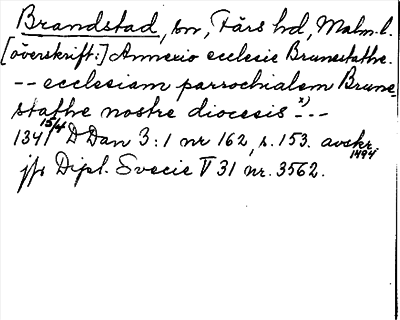 Brandstad, sn, Färs hd, Malm. l.
[överskrift:] Annexio ecclesie Brunestathe.
-- ecclesiam parrochialem Brune-
stathe nostre diocesis -x)--
1341 15/4 D Dan 3:1 nr 162, s. 153. avskr. 1494
jfr Dipl. Svecie V 31 nr. 3562.